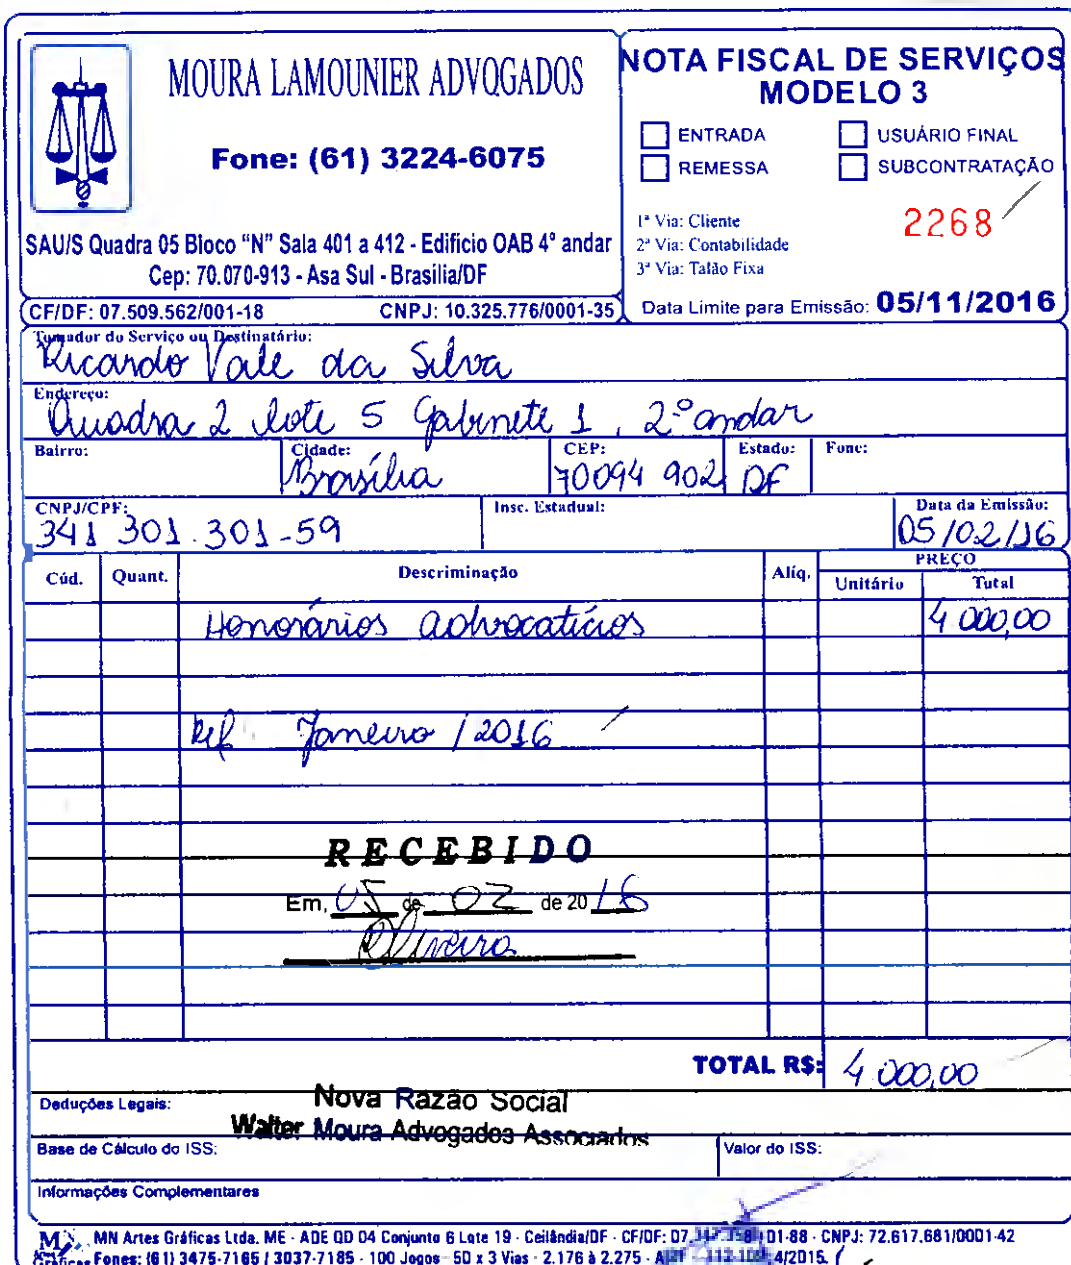 MOURA LAMOUNIER ADVOGADOS
Fone: (61) 3224-6075
SAU/S Quadra 05 Bloco "N" Sala 401 a 412 - Edifício OAB 4º andar
Cep: 70.070-913 - Asa Sul - Brasília/DF
CF/DF: 07.509.562/001-18 CNPJ: 10.325.776/0001-35
NOTA FISCAL DE SERVIÇOS
MODELO 3
ENTRADA USUÁRIO FINAL
REMESSA SUBCONTRATAÇÃO
1ª Via: Cliente
2ª Via: Contabilidade
3ª Via: Talão Fixa
2268
Data Limite para Emissão: 05/11/2016
Tomador do Serviço ou Destinatário:
Ricardo Vale da Silva
Endereço:
Quadra 2 lote 5 Gabinete 1, 2º andar
Bairro: Cidade: CEP: Estado: Fone:
Brasília 70094 902 DF
CNPJ/CPF: Insc. Estadual: Data da Emissão:
341 301.301-59 05/02/16
Cód. Quant. Descriminação Alíq. PREÇO
Unitário Total
Honorários advocatícios 4 000,00
Ref Janeiro / 2016
RECEBIDO
Em, 05 de 02 de 2016
Oliveira
TOTAL R$: 4 000,00
Nova Razão Social
Deduções Legais:
Walter Moura Advogados Associados
Base de Cálculo do ISS: Valor do ISS:
Informações Complementares
MN Artes Gráficas Ltda. ME - ADE QD 04 Conjunto 6 Lote 19 - Ceilândia/DF - CF/DF: 07. 01-88 - CNPJ: 72.617.681/0001-42
Gráficas Fones: (61) 3475-7165 / 3037-7185 - 100 Jogos - 50 x 3 Vias - 2.176 à 2.275 - 4/2015.